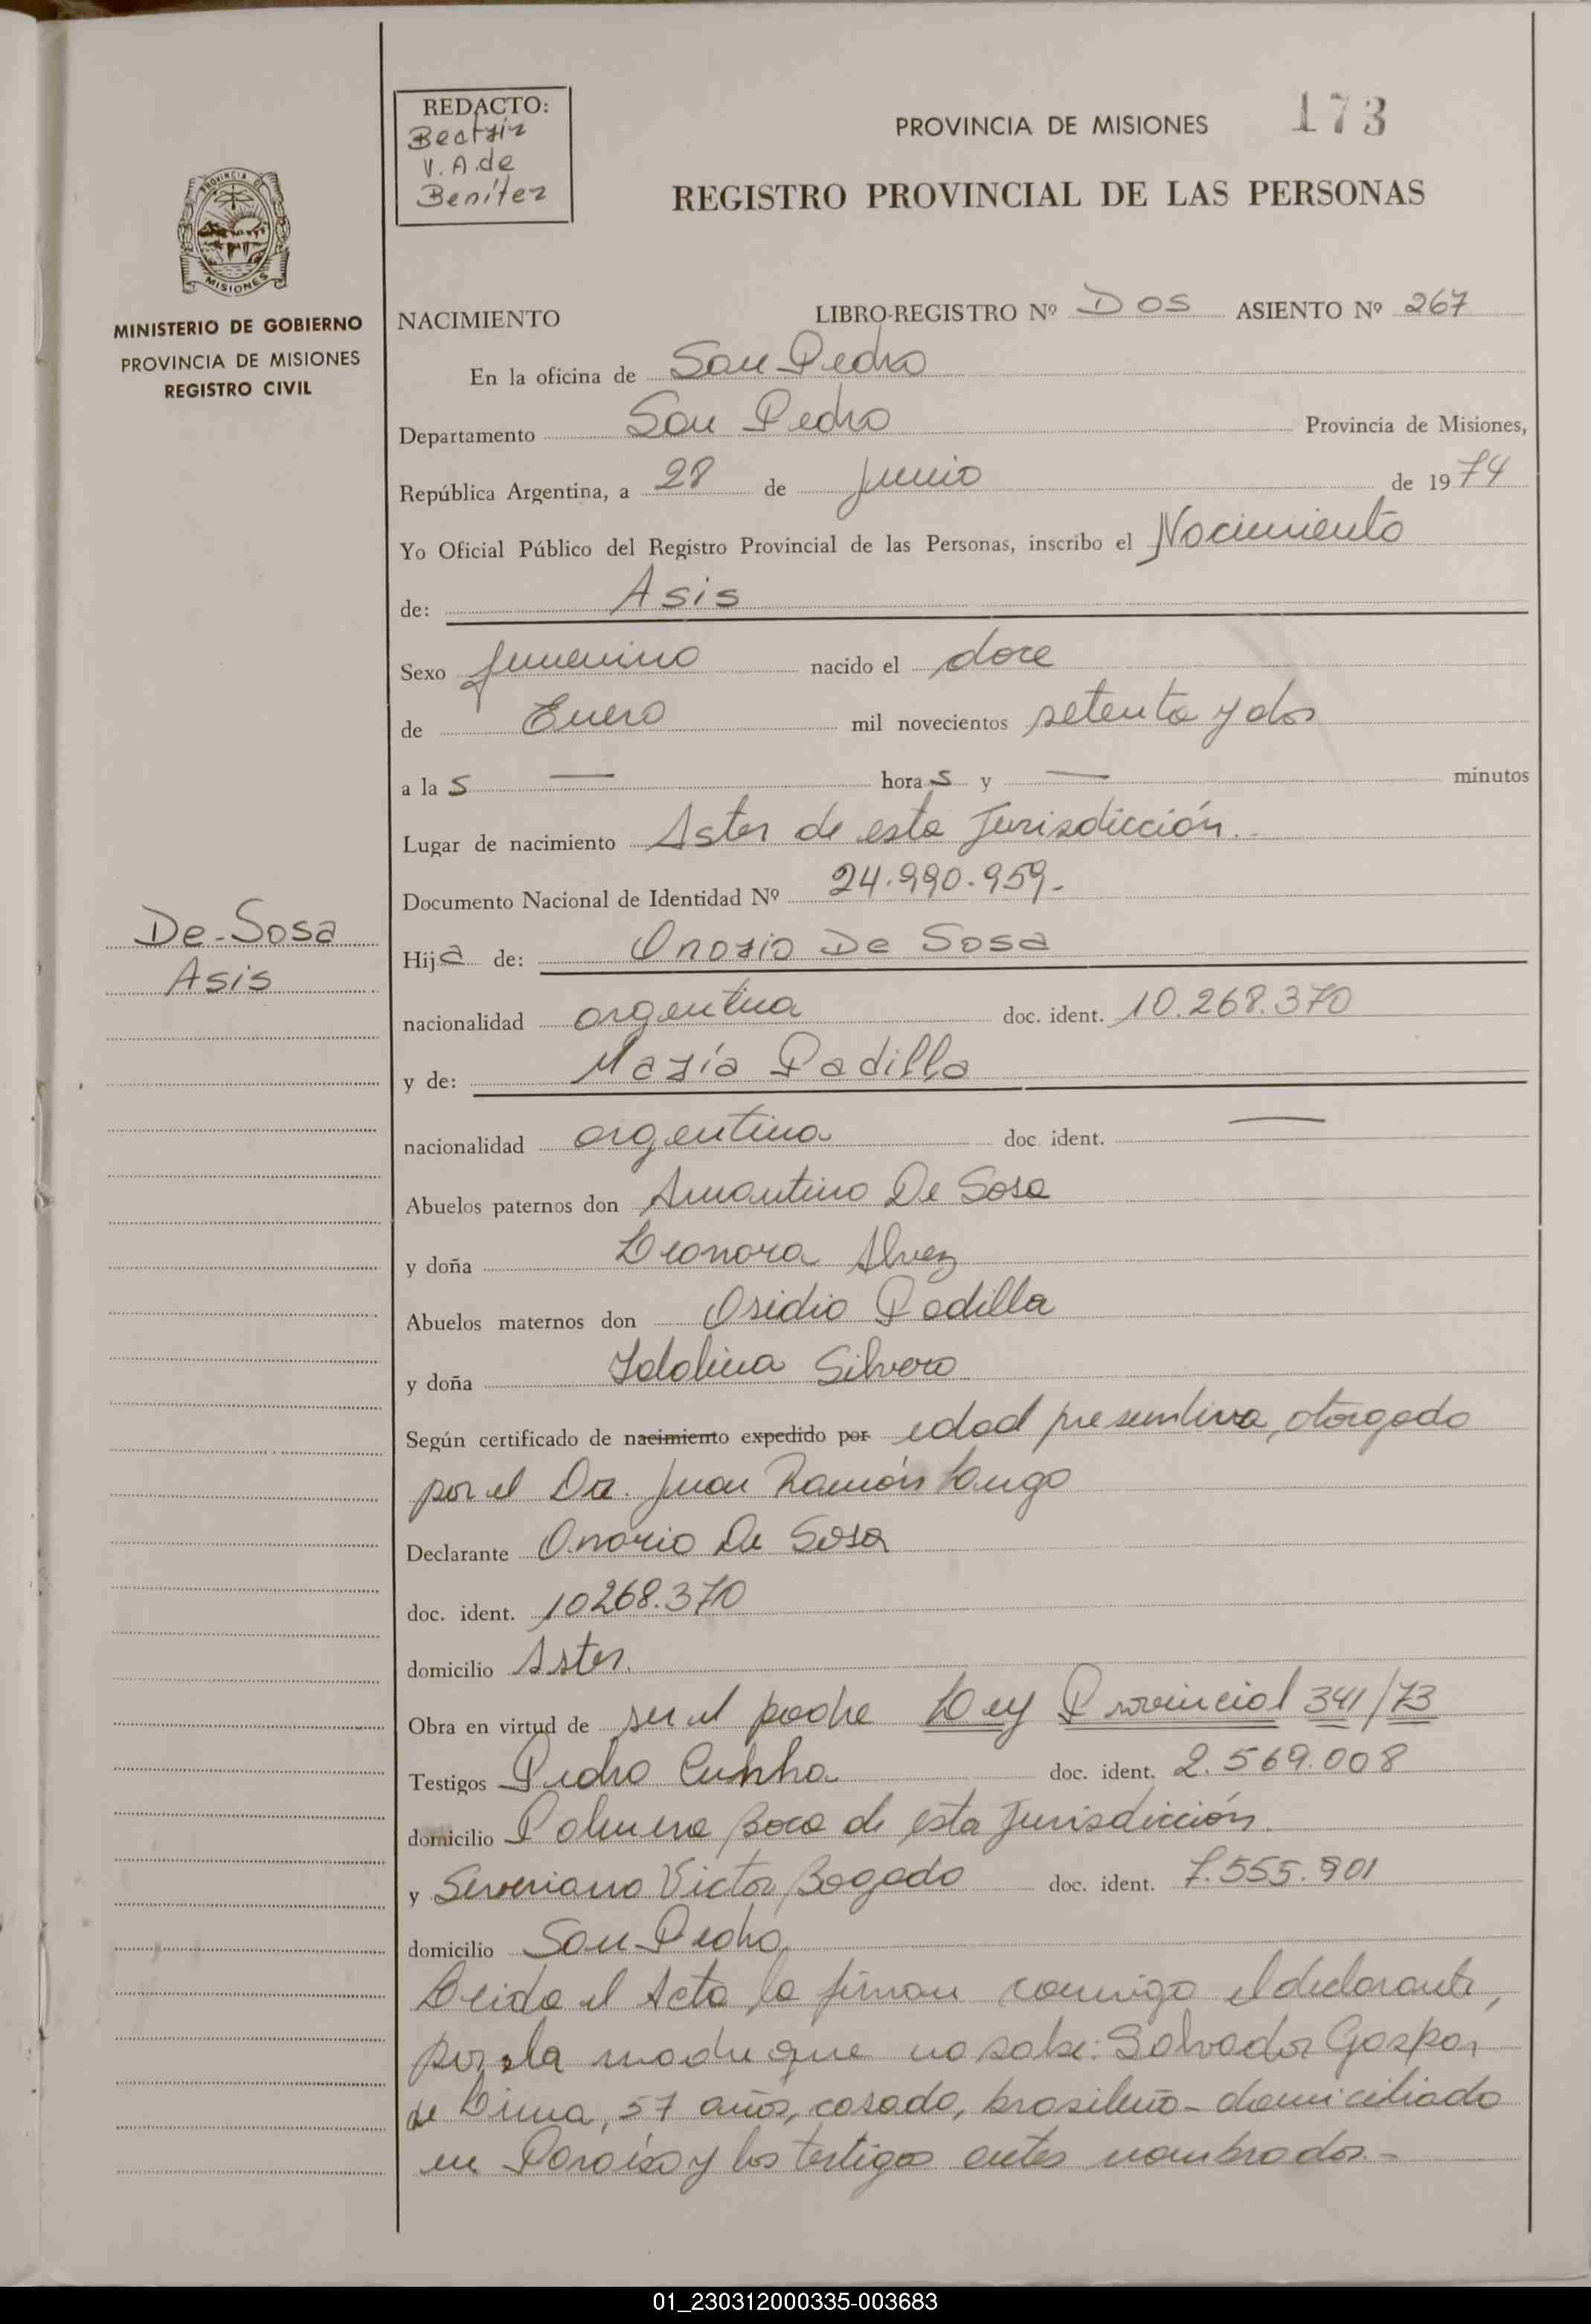 REDACTO:
Beatriz
V. A. de
Benítez
PROVINCIA DE MISIONES 173
REGISTRO PROVINCIAL DE LAS PERSONAS
PROVINCIA DE
MISIONES
MINISTERIO DE GOBIERNO
PROVINCIA DE MISIONES
REGISTRO CIVIL
NACIMIENTO LIBRO-REGISTRO Nº DOS ASIENTO Nº 267
En la oficina de San Pedro
Departamento San Pedro Provincia de Misiones,
República Argentina, a 28 de Junio de 1974
Yo Oficial Público del Registro Provincial de las Personas, inscribo el Nacimiento
de: Asis
Sexo femenino nacido el doce
de Enero mil novecientos setenta y dos
a las — horas y — minutos
Lugar de nacimiento Aster de esta Jurisdicción.
Documento Nacional de Identidad Nº 24.990.959.
De-Sosa
Asis
Hija de: Onorio De Sosa
nacionalidad argentina doc. ident. 10.268.370
y de: María Padilla
nacionalidad argentina doc. ident. —
Abuelos paternos don Amantino De Sosa
y doña Leonora Alvez
Abuelos maternos don Osidio Padilla
y doña Idalina Silvero
Según certificado de nacimiento expedido por edad presuntiva, otorgado
por el Dr. Juan Ramón Lugo
Declarante Onorio De Sosa
doc. ident. 10268.370
domicilio Aster.
Obra en virtud de ser el padre Ley Provincial 341/73
Testigos Pedro Cunha doc. ident. 2.569.008
domicilio Palmera Boca de esta Jurisdicción.
y Severiano Victor Bogado doc. ident. 7.555.901
domicilio San Pedro
Leida el Acta la firman conmigo el declarante,
por la madre que no sabe: Salvador Gaspar
de Lima, 57 años, casado, brasileño - domiciliado
en Paraíso y los testigos antes nombrados.-
01_230312000335-003683